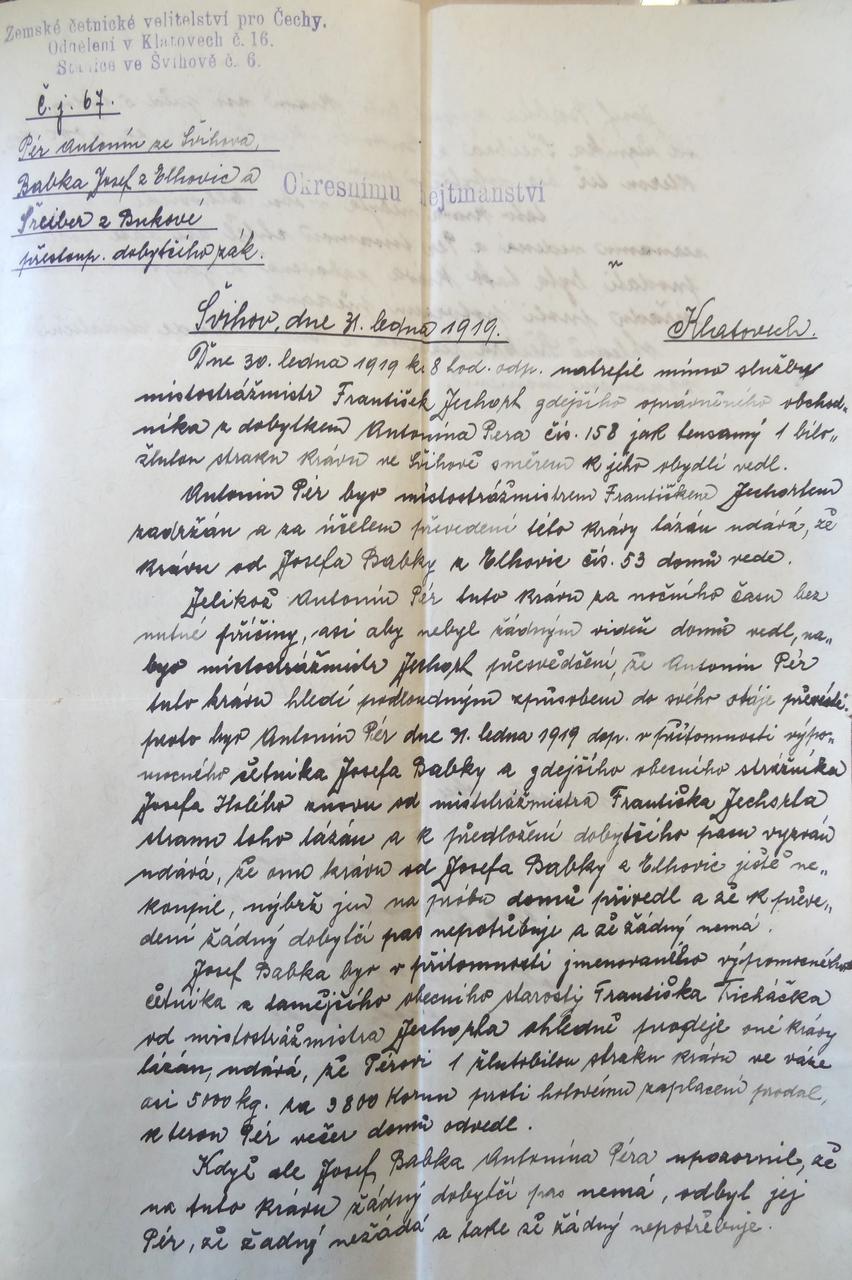 Zemské četnické velitelství pro Čechy.
Oddělení v Klatovech č. 16.
Stanice ve Švihově č. 6.
č. j. 67.
Pér Antonín ze Švihova,
Babka Josef z Elhovic a
Šreiber z Bukové
přestoup. dobytčího zák.
Okresnímu hejtmanství
v
Švihov, dne 31. ledna 1919.
Klatovech.
Dne 30. ledna 1919 k 8 hod. odp. natrefil mimo službu
místostrážmistr František Jechort gdejšího oprávněného obchod-
níka z dobytkem Antonína Pera čís. 158 jak tensamý 1 bílo-
žlutou straku krávu ve Švihově směrem k jeho obydlí vedl.
Antonín Pér byo místostrážmistrem Františkem Jechortem
zadržán a za účelem převedení této krávy tázán udává, že
krávu od Josefa Babky z Elhovic čís. 53 domů vede.
Jelikož Antonín Pér tuto krávu za nočního času bez
nutné příčiny, asi aby nebyl žádným viděn domů vedl, na-
byo místostrážmistr Jechort přesvědčení, že Antonín Pér
tuto krávu hledí podloudným způsobem do svého stáje převésti.
proto byo Antonín Pér dne 31. ledna 1919 dop. v přítomnosti výpo-
mocného četníka Josefa Babky a gdejšího obecního strážníka
Josefa Holého znovu od místostrážmistra Františka Jechorta
stranu toho tázán a k předložení dobytčího pasu vyzván
udává, že onu krávu od Josefa Babky z Elhovic ještě ne-
koupil, nýbrž jen na próbu domů přivedl a že k převe-
dení žádný dobytčí pas nepotřebuje a že žádný nemá.
Josef Babka byo v přítomnosti jmenovaného výpomocného
četníka a tamějšího obecního starosty Františka Ticháčka
od místostrážmistra Jechorta ohledně prodeje oné krávy
tázán, udává, že Pérovi 1 žlutobílou straku krávu ve váze
asi 5000 kg. za 3800 Korun proti hotovému zaplacení prodal,
kterou Pér večer domů odvedl.
Když ale Josef Babka Antonína Péra upozornil, že
na tuto krávu žádný dobytčí pas nemá, odbyl jej
Pér, že žadný nežádá a take že žádný nepotřebuje.